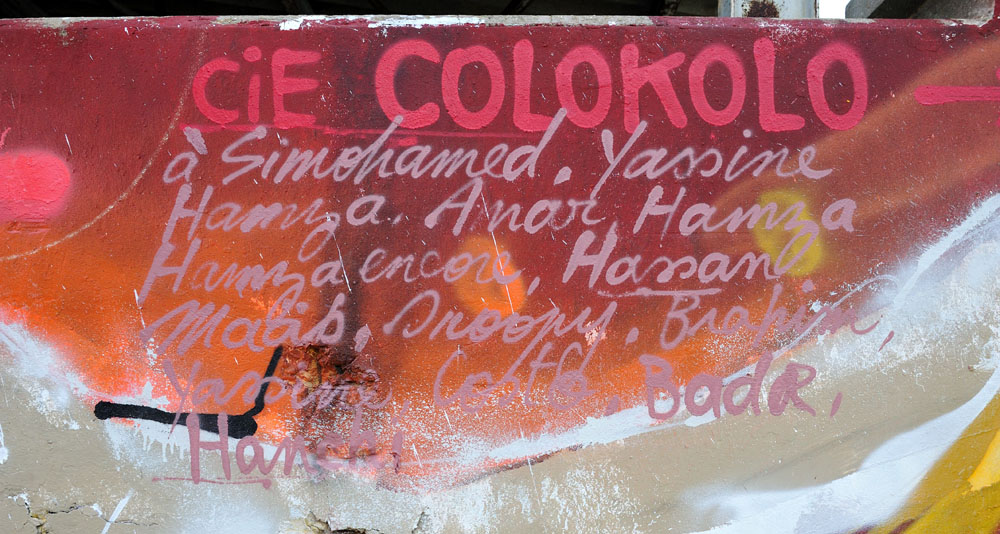 CiE COLOKOLO
à Simohamed, Yassine
Hamza, Anar, Hamza
Hamza encore, Hassan
Droopy, Brahim,
Yassine, Costa, BadR,
Hanchi